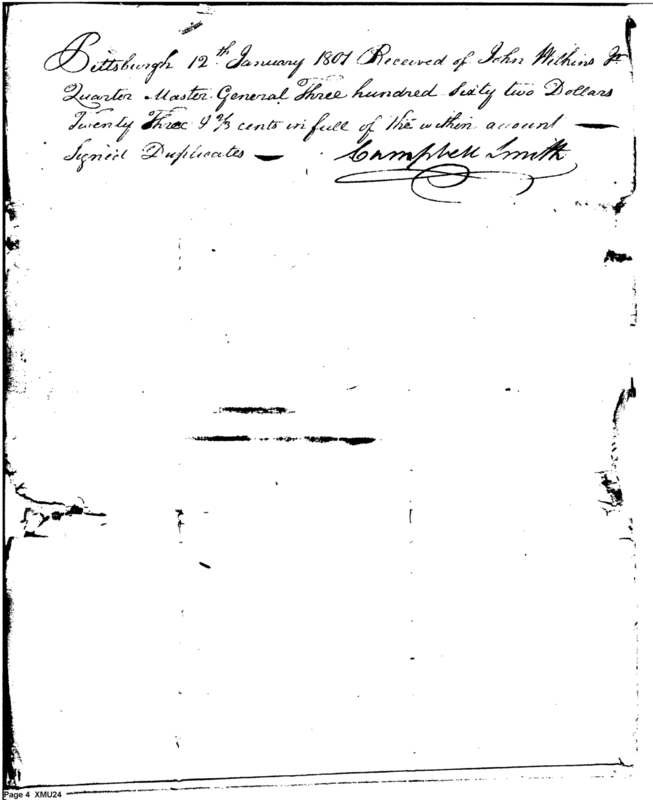 Pittsburgh 12th January 1801 Received of John Wilkins Jr
Quarter Master General Three hundred Sixty two Dollars
Twenty Three & 2/3 cents in full of the within account
Signed Duplicates Campbell Smith
Page 4 XMU24